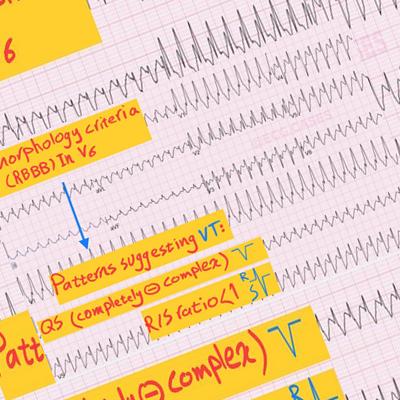 6
morphology criteria
(RBBB) In V6
Patterns suggesting VT:
QS (completely ⊖ complex)
R/S ratio <1 R/S
Patt
ely ⊖ complex)
R/